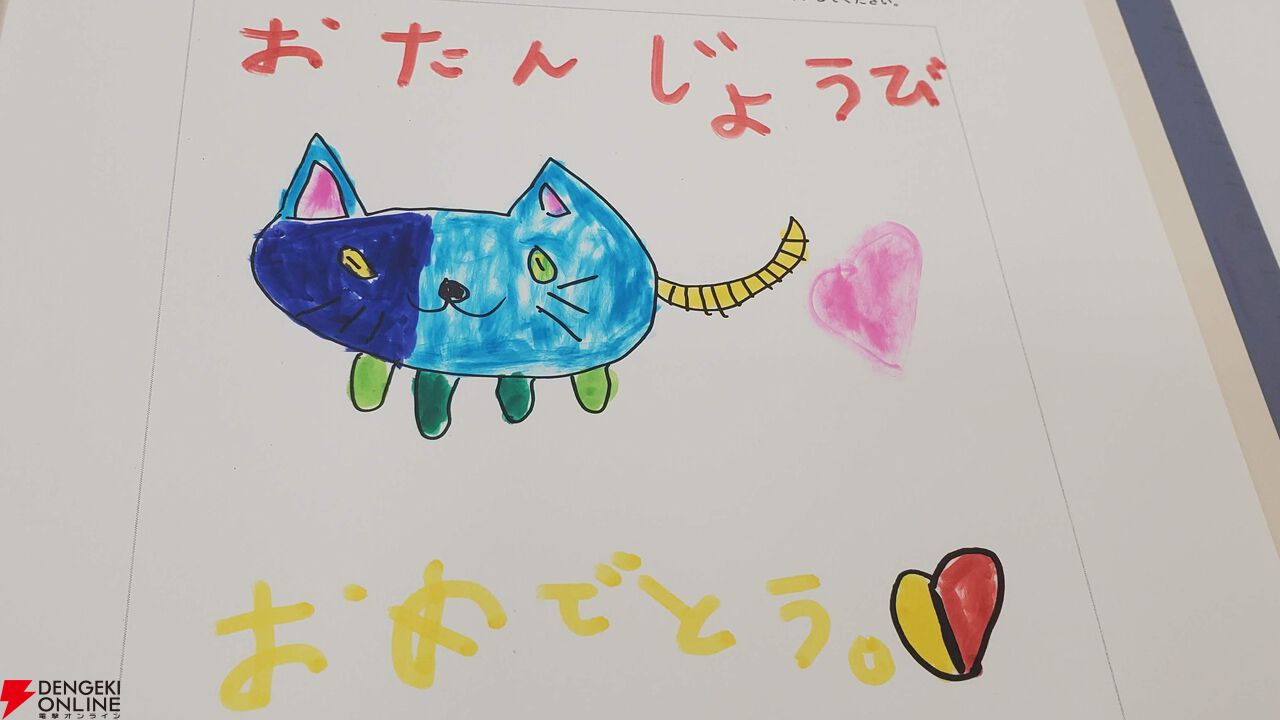 ください。
おたんじょうび
おめでとう。
DENGEKI
ONLINE
電撃オンライン